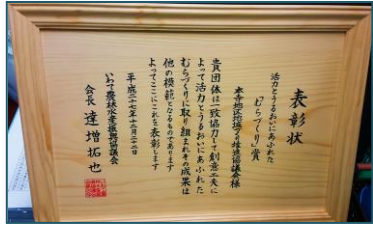 表彰状
活力とうるおいにあふれた
「むらづくり」賞
本寺地区地域づくり推進協議会様
貴団体は一致協力して創意工夫に
よって活力とうるおいにあふれた
むらづくりに取り組まれその成果は
他の模範となるものであります
よってここにこれを表彰します
平成二十七年十二月二十二日
いわて農林水産振興協議会
会長 達増拓也